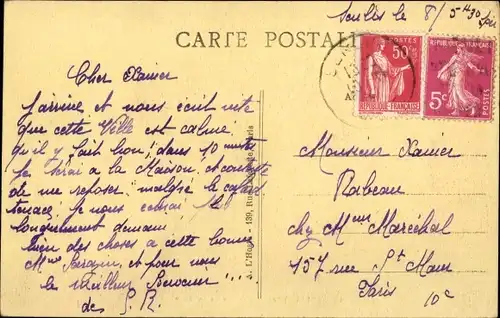 Senlis le 8/ 5h30
CARTE POSTALE
Cher Xavier
J'arrive et vous écrit vite
que cette Ville est calme,
qu'il y fait bon! dans 10 mntes
je serai à la Maison, et contente
de me reposer, malgré le cafard
tenace, je vous
longuement demain
Bien des choses à cette bonne
Mme et pour vous
le Meilleur Souvenir ...
de G. R.
J. L'H 139, Rue Paris
50c
POSTES
REPUBLIQUE FRANÇAISE
REPUBLIQUE FRANÇAISE
POSTES
5c
Monsieur Xavier
Rabeau
chz Mme Maréchal
157 rue St Maur
Paris 10e